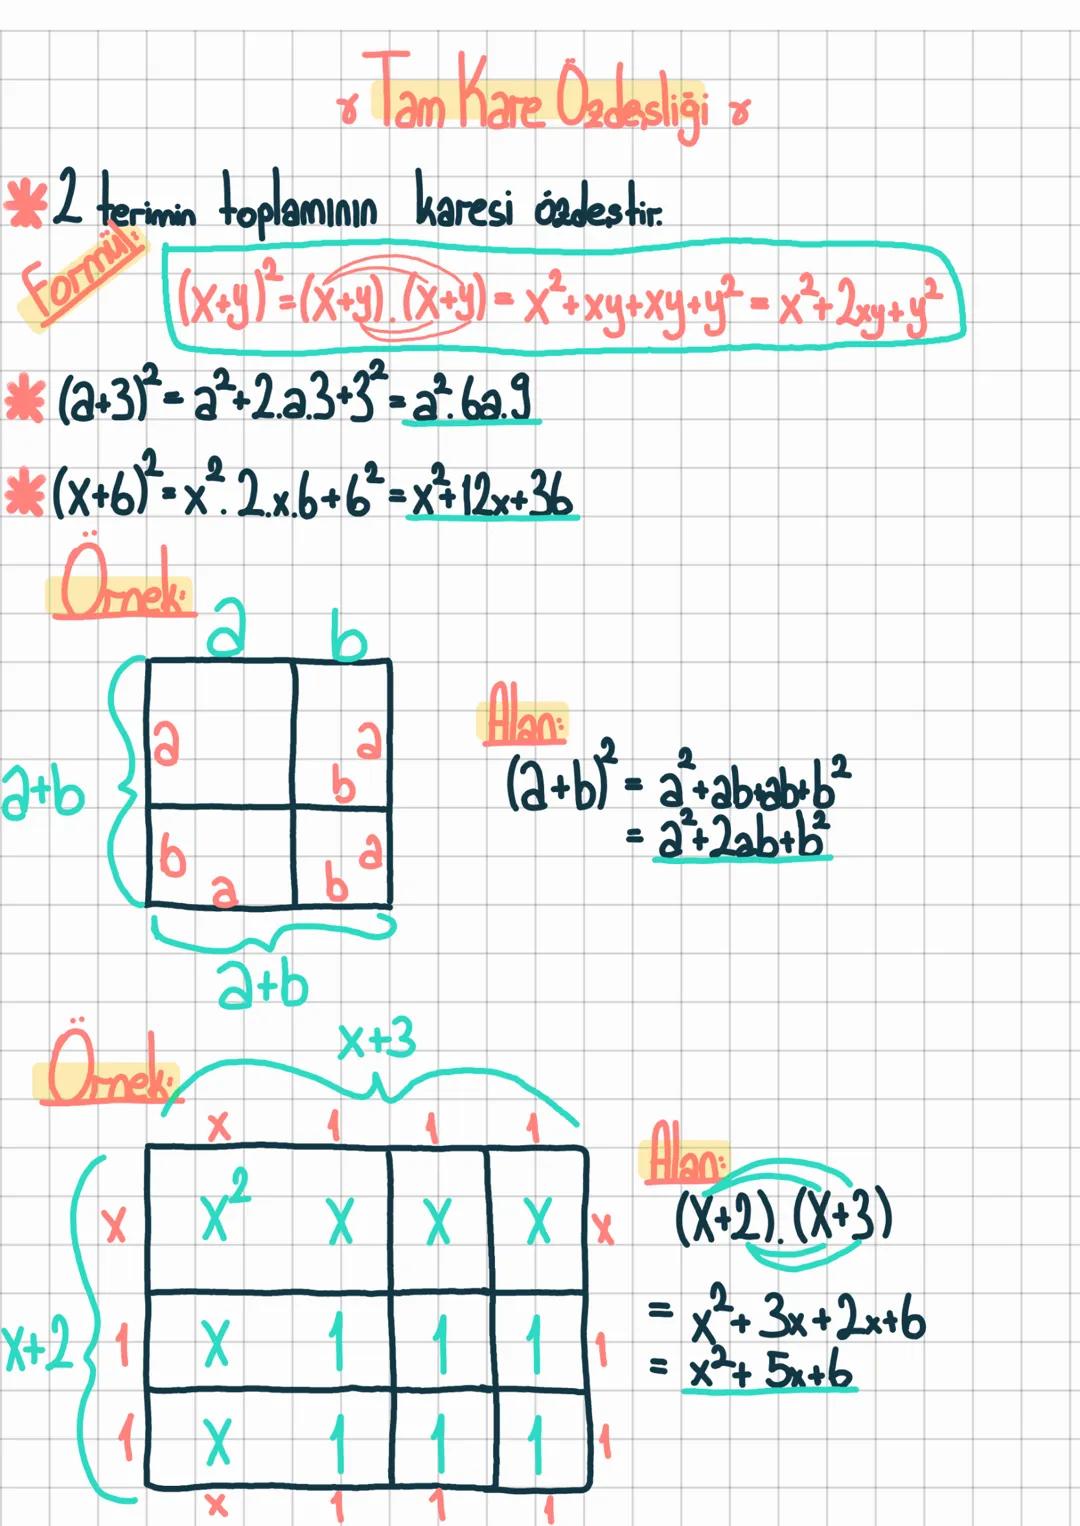 Tam Kare Özdeşliği
* 2 terimin toplamının karesi özdeştir.
Formül:
(x+y)²=(x+y).(x+y)=x²+xy+xy+y²=x²+2xy+y²
* (a+3)²=a²+2.a.3+3²=a².6a.9
* (x+6)²=x².2.x.6+6²=x²+12x+36
Örnek:
a b
a a
b
a+b
b a
a b
a+b
Alan:
(a+b)²=a²+ab+ab+b²
=a²+2ab+b²
Örnek:
x+3
x 1 1 1
x x² x x x x
x+2
1 x 1 1 1 1
1 x 1 1 1 1
x 1 1 1
Alan:
(x+2).(x+3)
=x²+3x+2x+6
=x²+5x+6